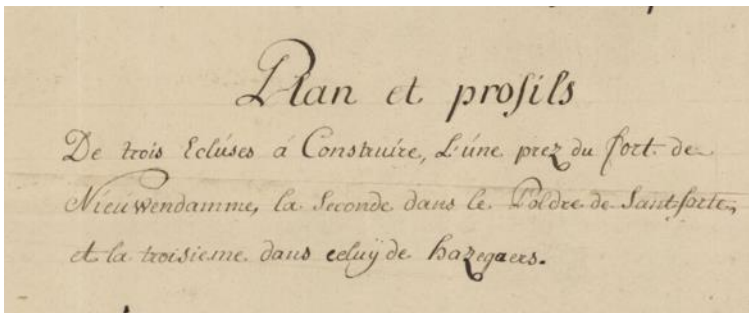 Plan et profils
De trois Ecluses á Construire, L'une prez du fort de
Nieuwendamme, la Seconde dans le Poldre de Santforte,
et la troisieme dans celuÿ de hazegaers.